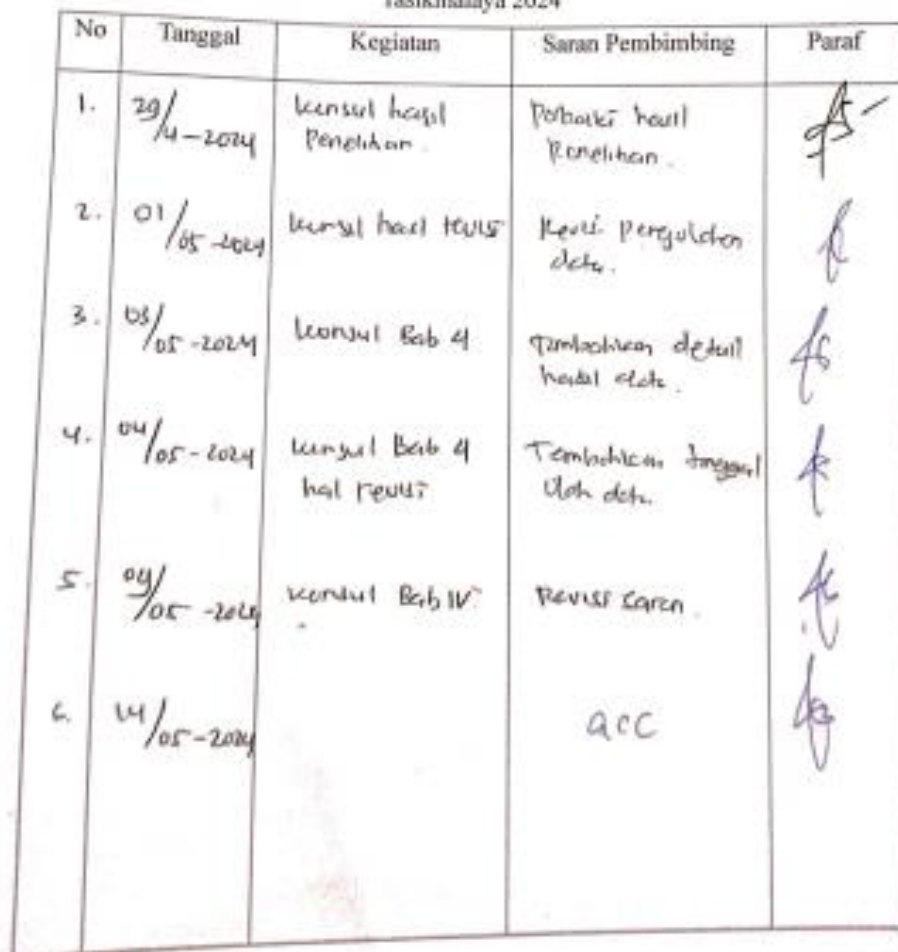 Tasikmalaya 2024
No Tanggal Kegiatan Saran Pembimbing Paraf
1. 29/4-2024 konsul hasil Perbaiki hasil
Penelitian. Penelitian.
2. 01/05-2024 konsul hasil revisi Revisi pengolahan
data.
3. 03/05-2024 konsul Bab 4 Tambahkan detail
hasil data.
4. 04/05-2024 konsul Bab 4 Tambahkan tanggal
hal revisi olah data.
5. /05-2024 konsul Bab IV. Revisi saran.
6. 14/05-2024 acc